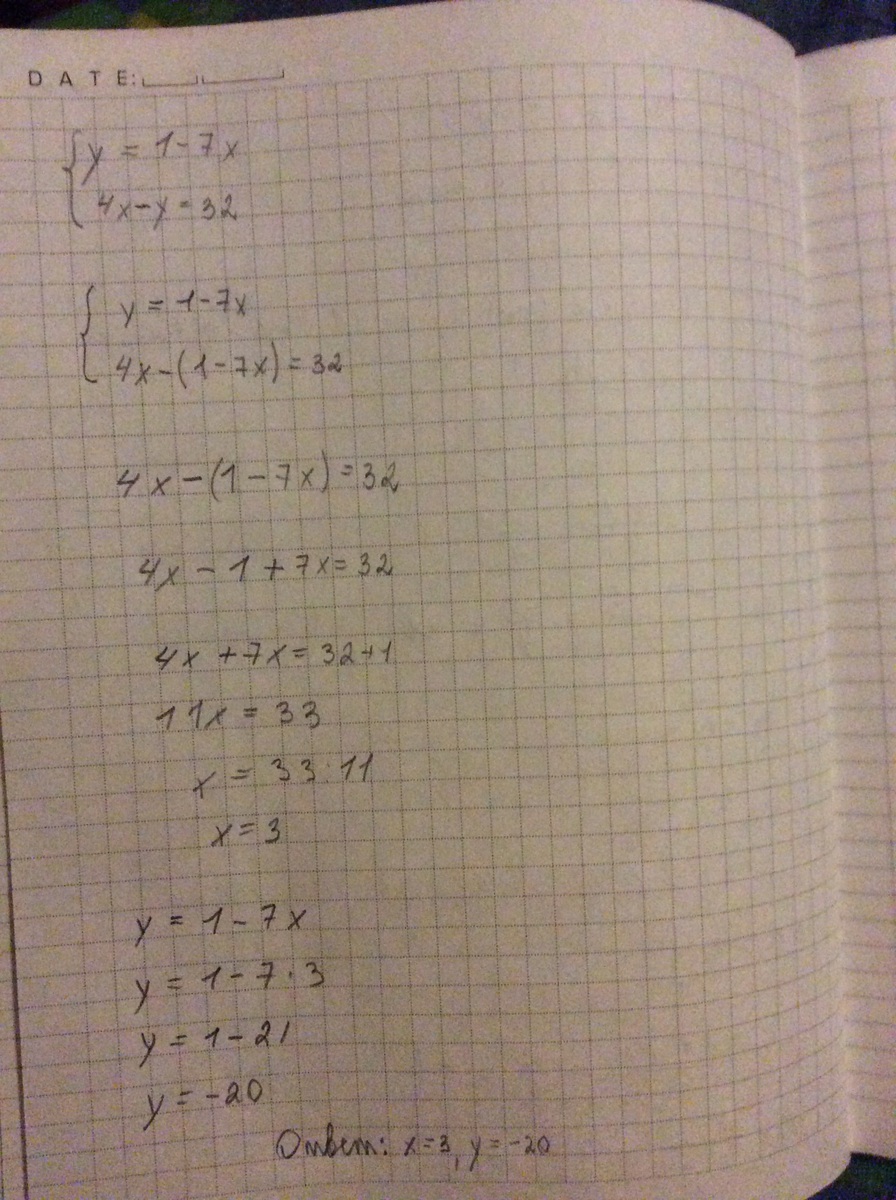 DATE:
y = 1-7x
4x-y=32
y = 1-7x
4x-(1-7x)=32
4x-(1-7x)=32
4x-1+7x=32
4x+7x=32+1
11x=33
x=33:11
x=3
y=1-7x
y=1-7·3
y=1-21
y=-20
Ответ: x=3, y=-20